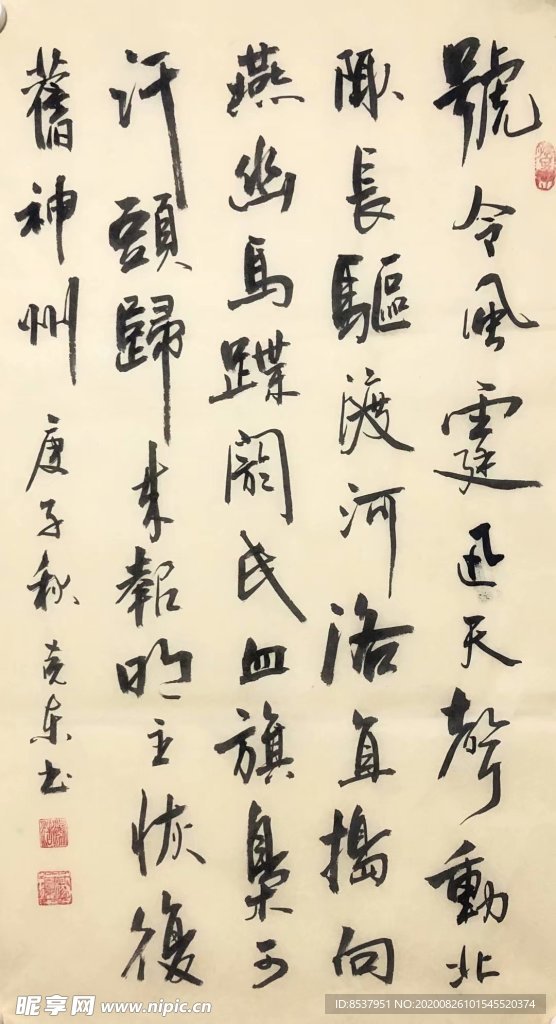 號令風霆迅天聲動北
陬長驅渡河洛直搗向
燕幽馬蹀閼氏血旗枭可
汗頭歸来報明主恢復
舊神州
庚子秋 克東书
昵享网 www.nipic.cn
ID:8537951 NO:20200826101545520374